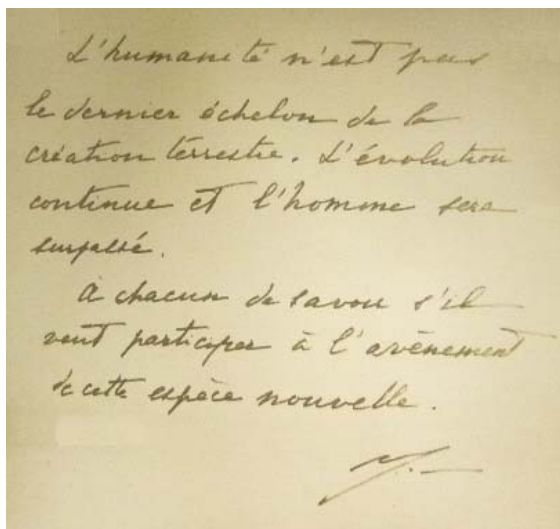 L'humanité n'est pas
le dernier échelon de la
création terrestre. L'évolution
continue et l'homme sera
surpassé.
A chacun de savoir s'il
veut participer à l'avènement
de cette espèce nouvelle.